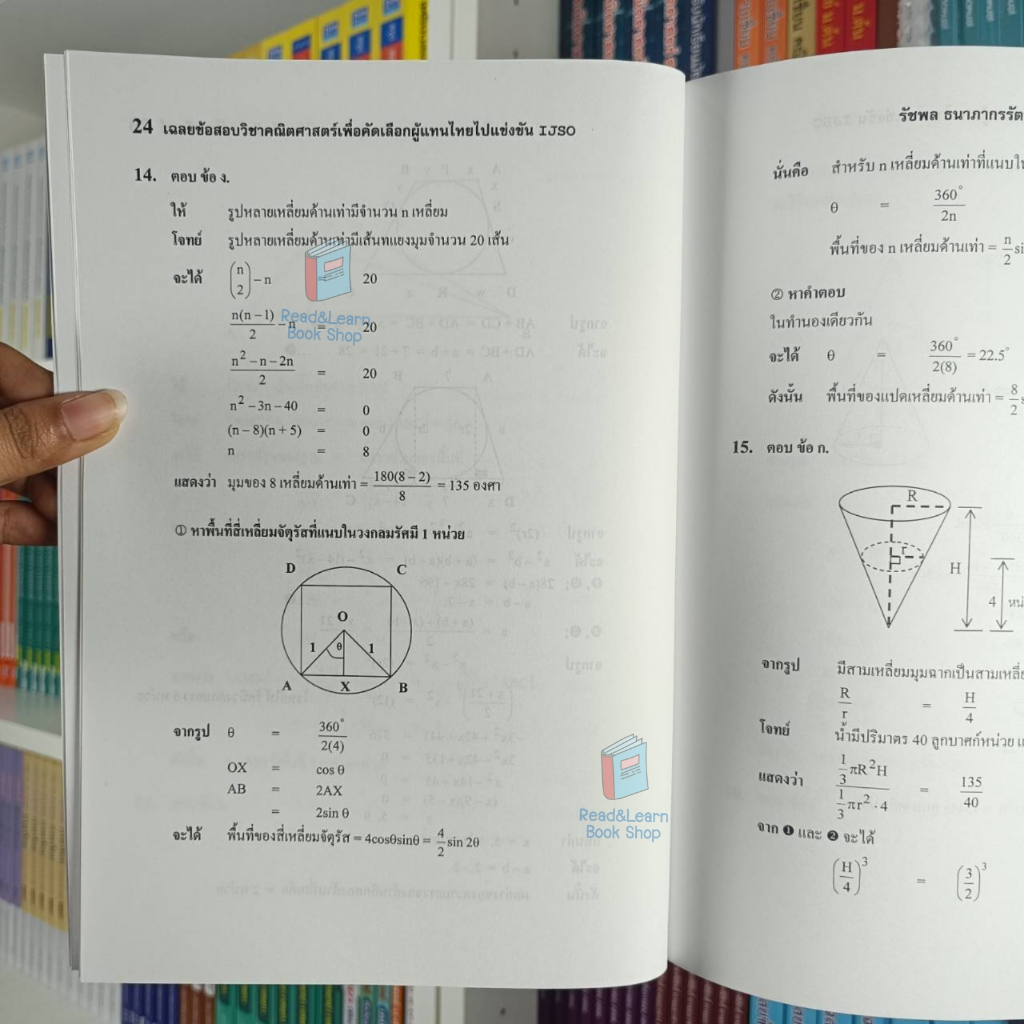 24 เฉลยข้อสอบวิชาคณิตศาสตร์เพื่อคัดเลือกผู้แทนไทยไปแข่งขัน IJSO
14. ตอบ ข้อ ง.
ให้ รูปหลายเหลี่ยมด้านเท่ามีจำนวน n เหลี่ยม
โจทย์ รูปหลายเหลี่ยมด้านเท่ามีเส้นทแยงมุมจำนวน 20 เส้น
จะได้ (n 2) – n 20
n(n – 1)/2 – n = 20
n² – n – 2n/2 = 20
n² – 3n – 40 = 0
(n – 8)(n + 5) = 0
n = 8
แสดงว่า มุมของ 8 เหลี่ยมด้านเท่า = 180(8 – 2)/8 = 135 องศา
① หาพื้นที่สี่เหลี่ยมจัตุรัสที่แนบในวงกลมรัศมี 1 หน่วย
D C
O
1 θ 1
A X B
จากรูป θ = 360°/2(4)
OX = cos θ
AB = 2AX
= 2sin θ
จะได้ พื้นที่ของสี่เหลี่ยมจัตุรัส = 4cosθsinθ = 4/2 sin 2θ
Read&Learn
Book Shop
Read&Learn
Book Shop
รัชพล
นั่นคือ สำหรับ n เหลี่ยมด้านเท่าที่แนบใน
θ = 360°/2n
พื้นที่ของ n เหลี่ยมด้านเท่า = n/2
② หาคำตอบ
ในทำนองเดียวกัน
จะได้ θ = 360°/2(8) = 22.5°
ดังนั้น พื้นที่ของแปดเหลี่ยมด้านเท่า = 8/2
15. ตอบ ข้อ ก.
R
r
H
4
จากรูป มีสามเหลี่ยมมุมฉากเป็นสามเหลี่
R/r = H/4
โจทย์ น้ำมีปริมาตร 40 ลูกบาศก์หน่วย
แสดงว่า 1/3 πR²H / 1/3 πr² · 4 = 135/40
จาก ❶ และ ❷ จะได้
(H/4)³ = (3/2)³